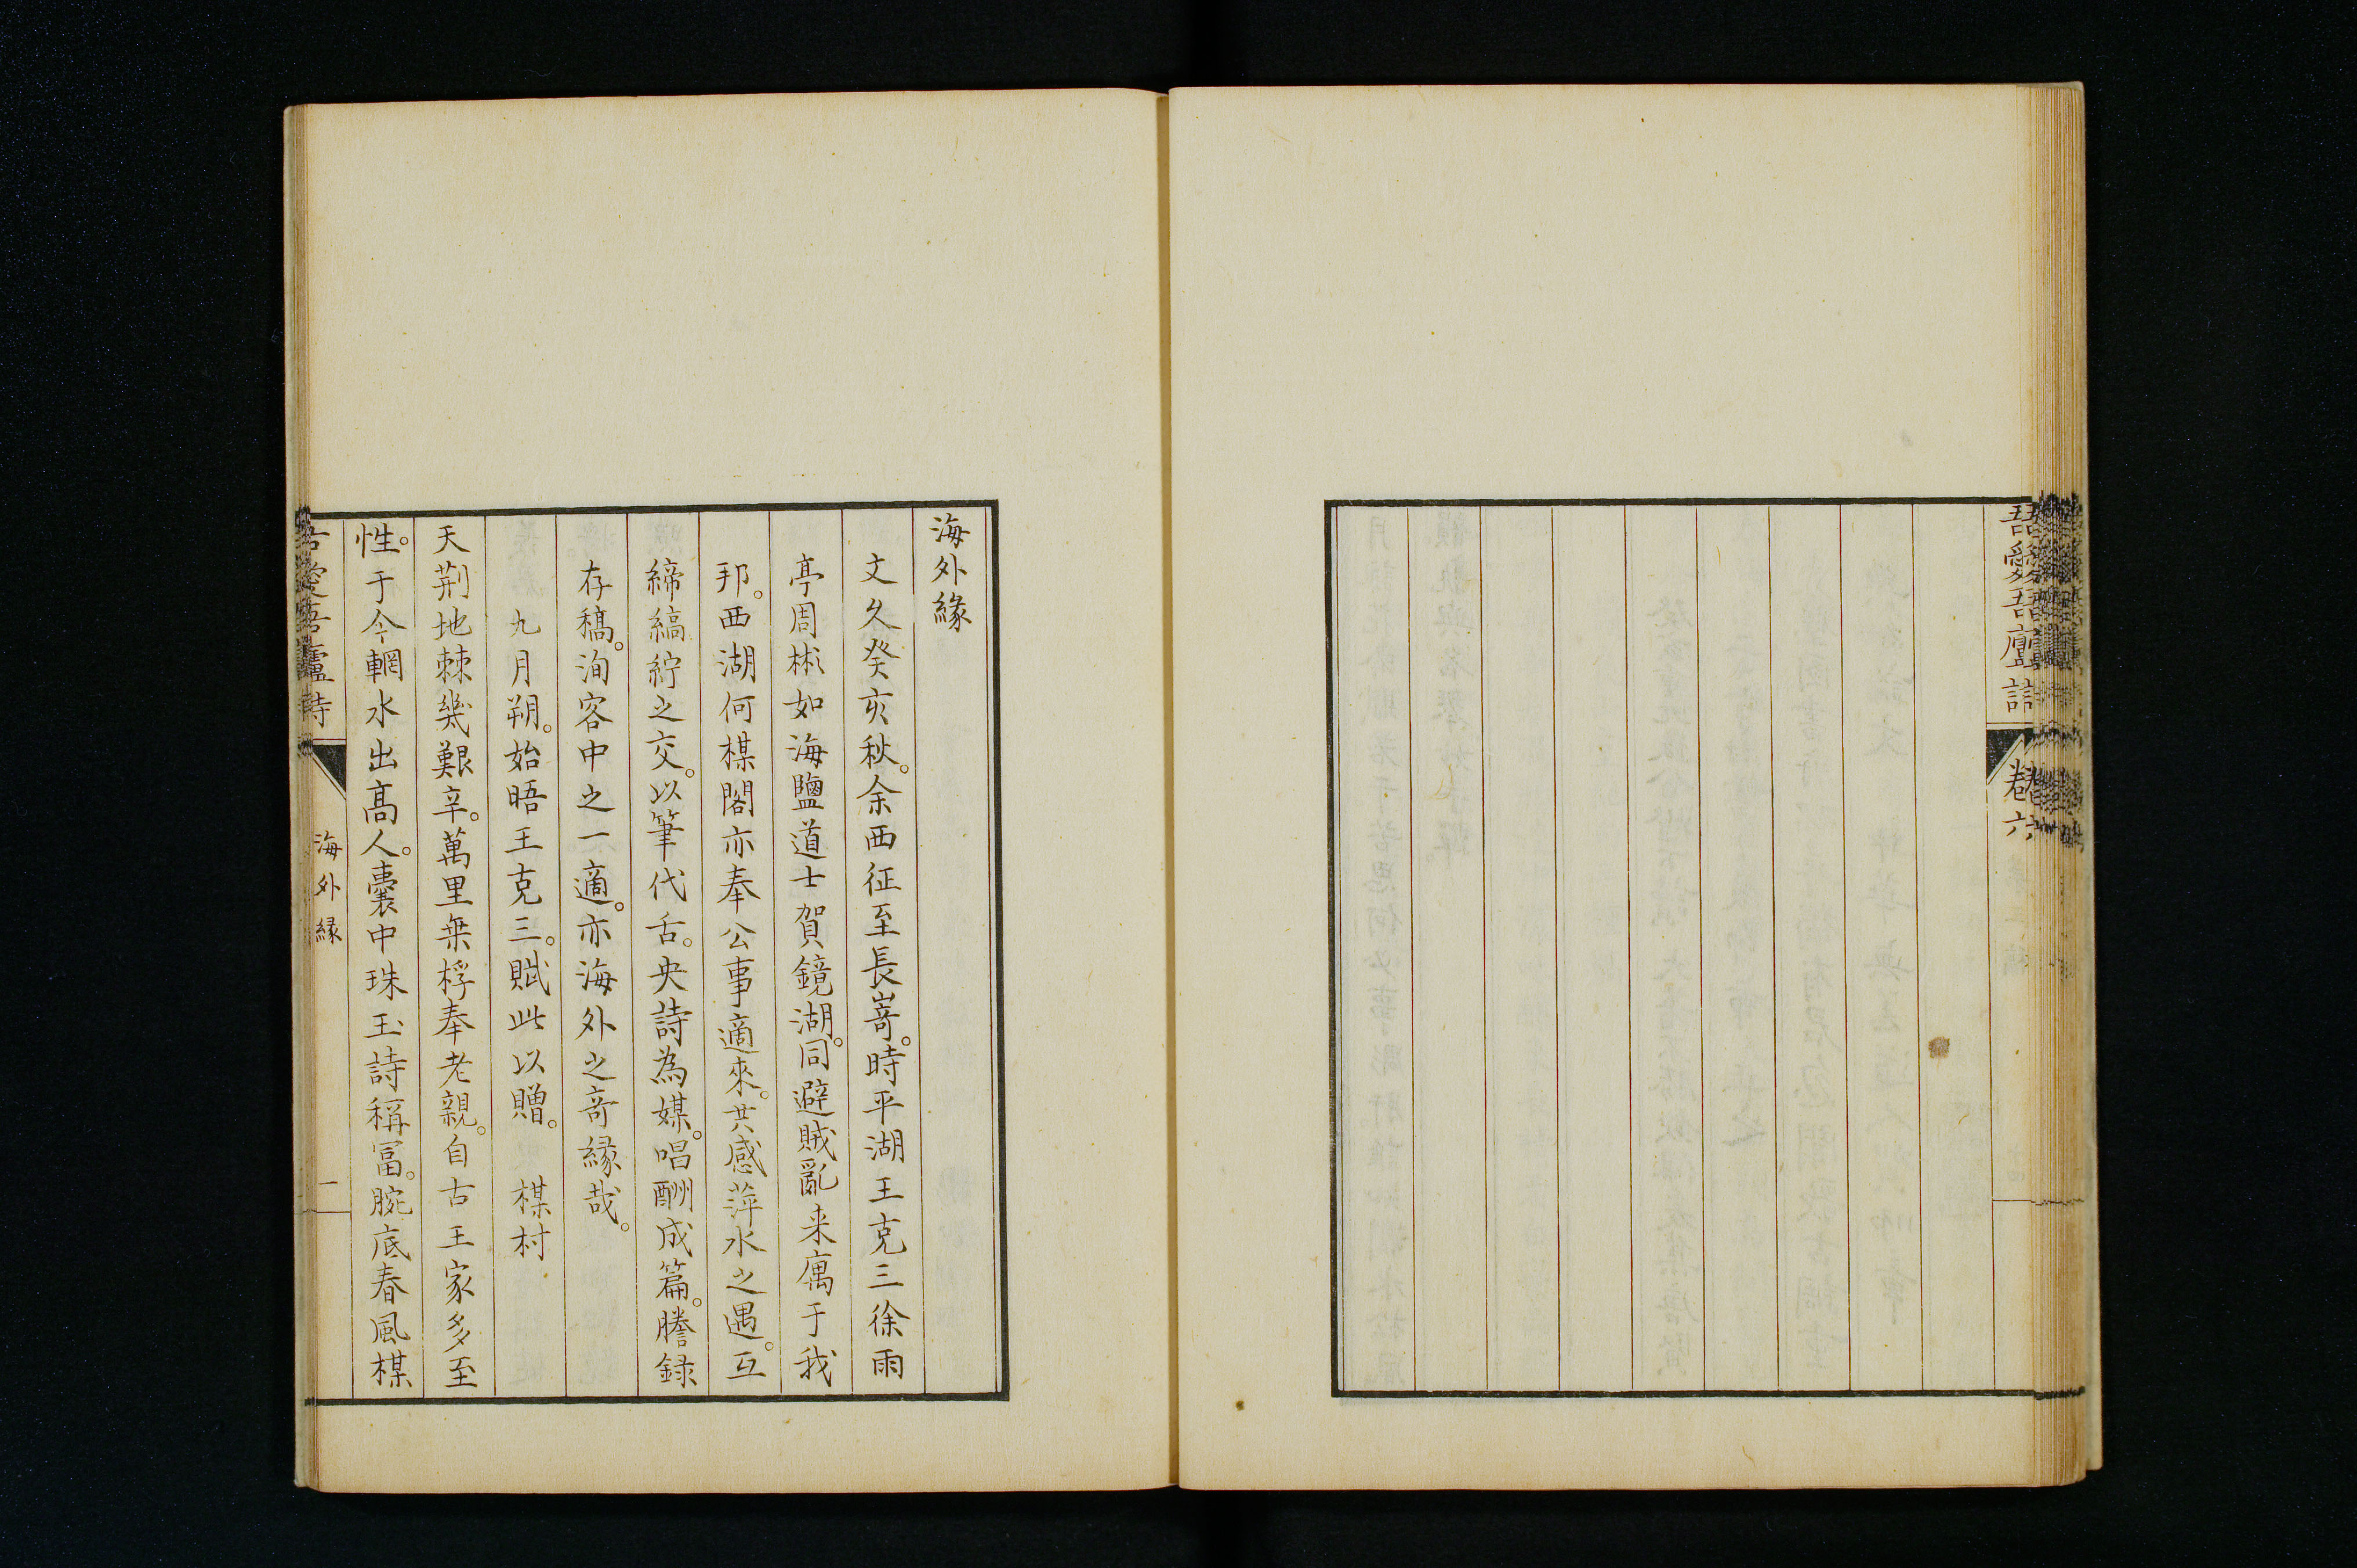 吾愛吾廬詩
卷六
海外緣
文久癸亥秋。余西征至長嵜。時平湖王克三徐雨
亭周彬如海鹽道士賀鏡湖。同避賊亂来寓于我
邦。西湖何楳閣亦奉公事適來。共感萍水之遇。互
締縞紵之交。以筆代舌。央詩為媒。唱酬成篇。謄録
存稿。洵客中之一適。亦海外之奇縁哉。
九月朔。始晤王克三。賦此以贈。 楳村
天荆地棘幾艱辛。萬里無桴奉老親。自古王家多至
性。于今輞水出高人。囊中珠玉詩稱冨。腕底春風楳
吾愛吾廬詩
海外縁
一